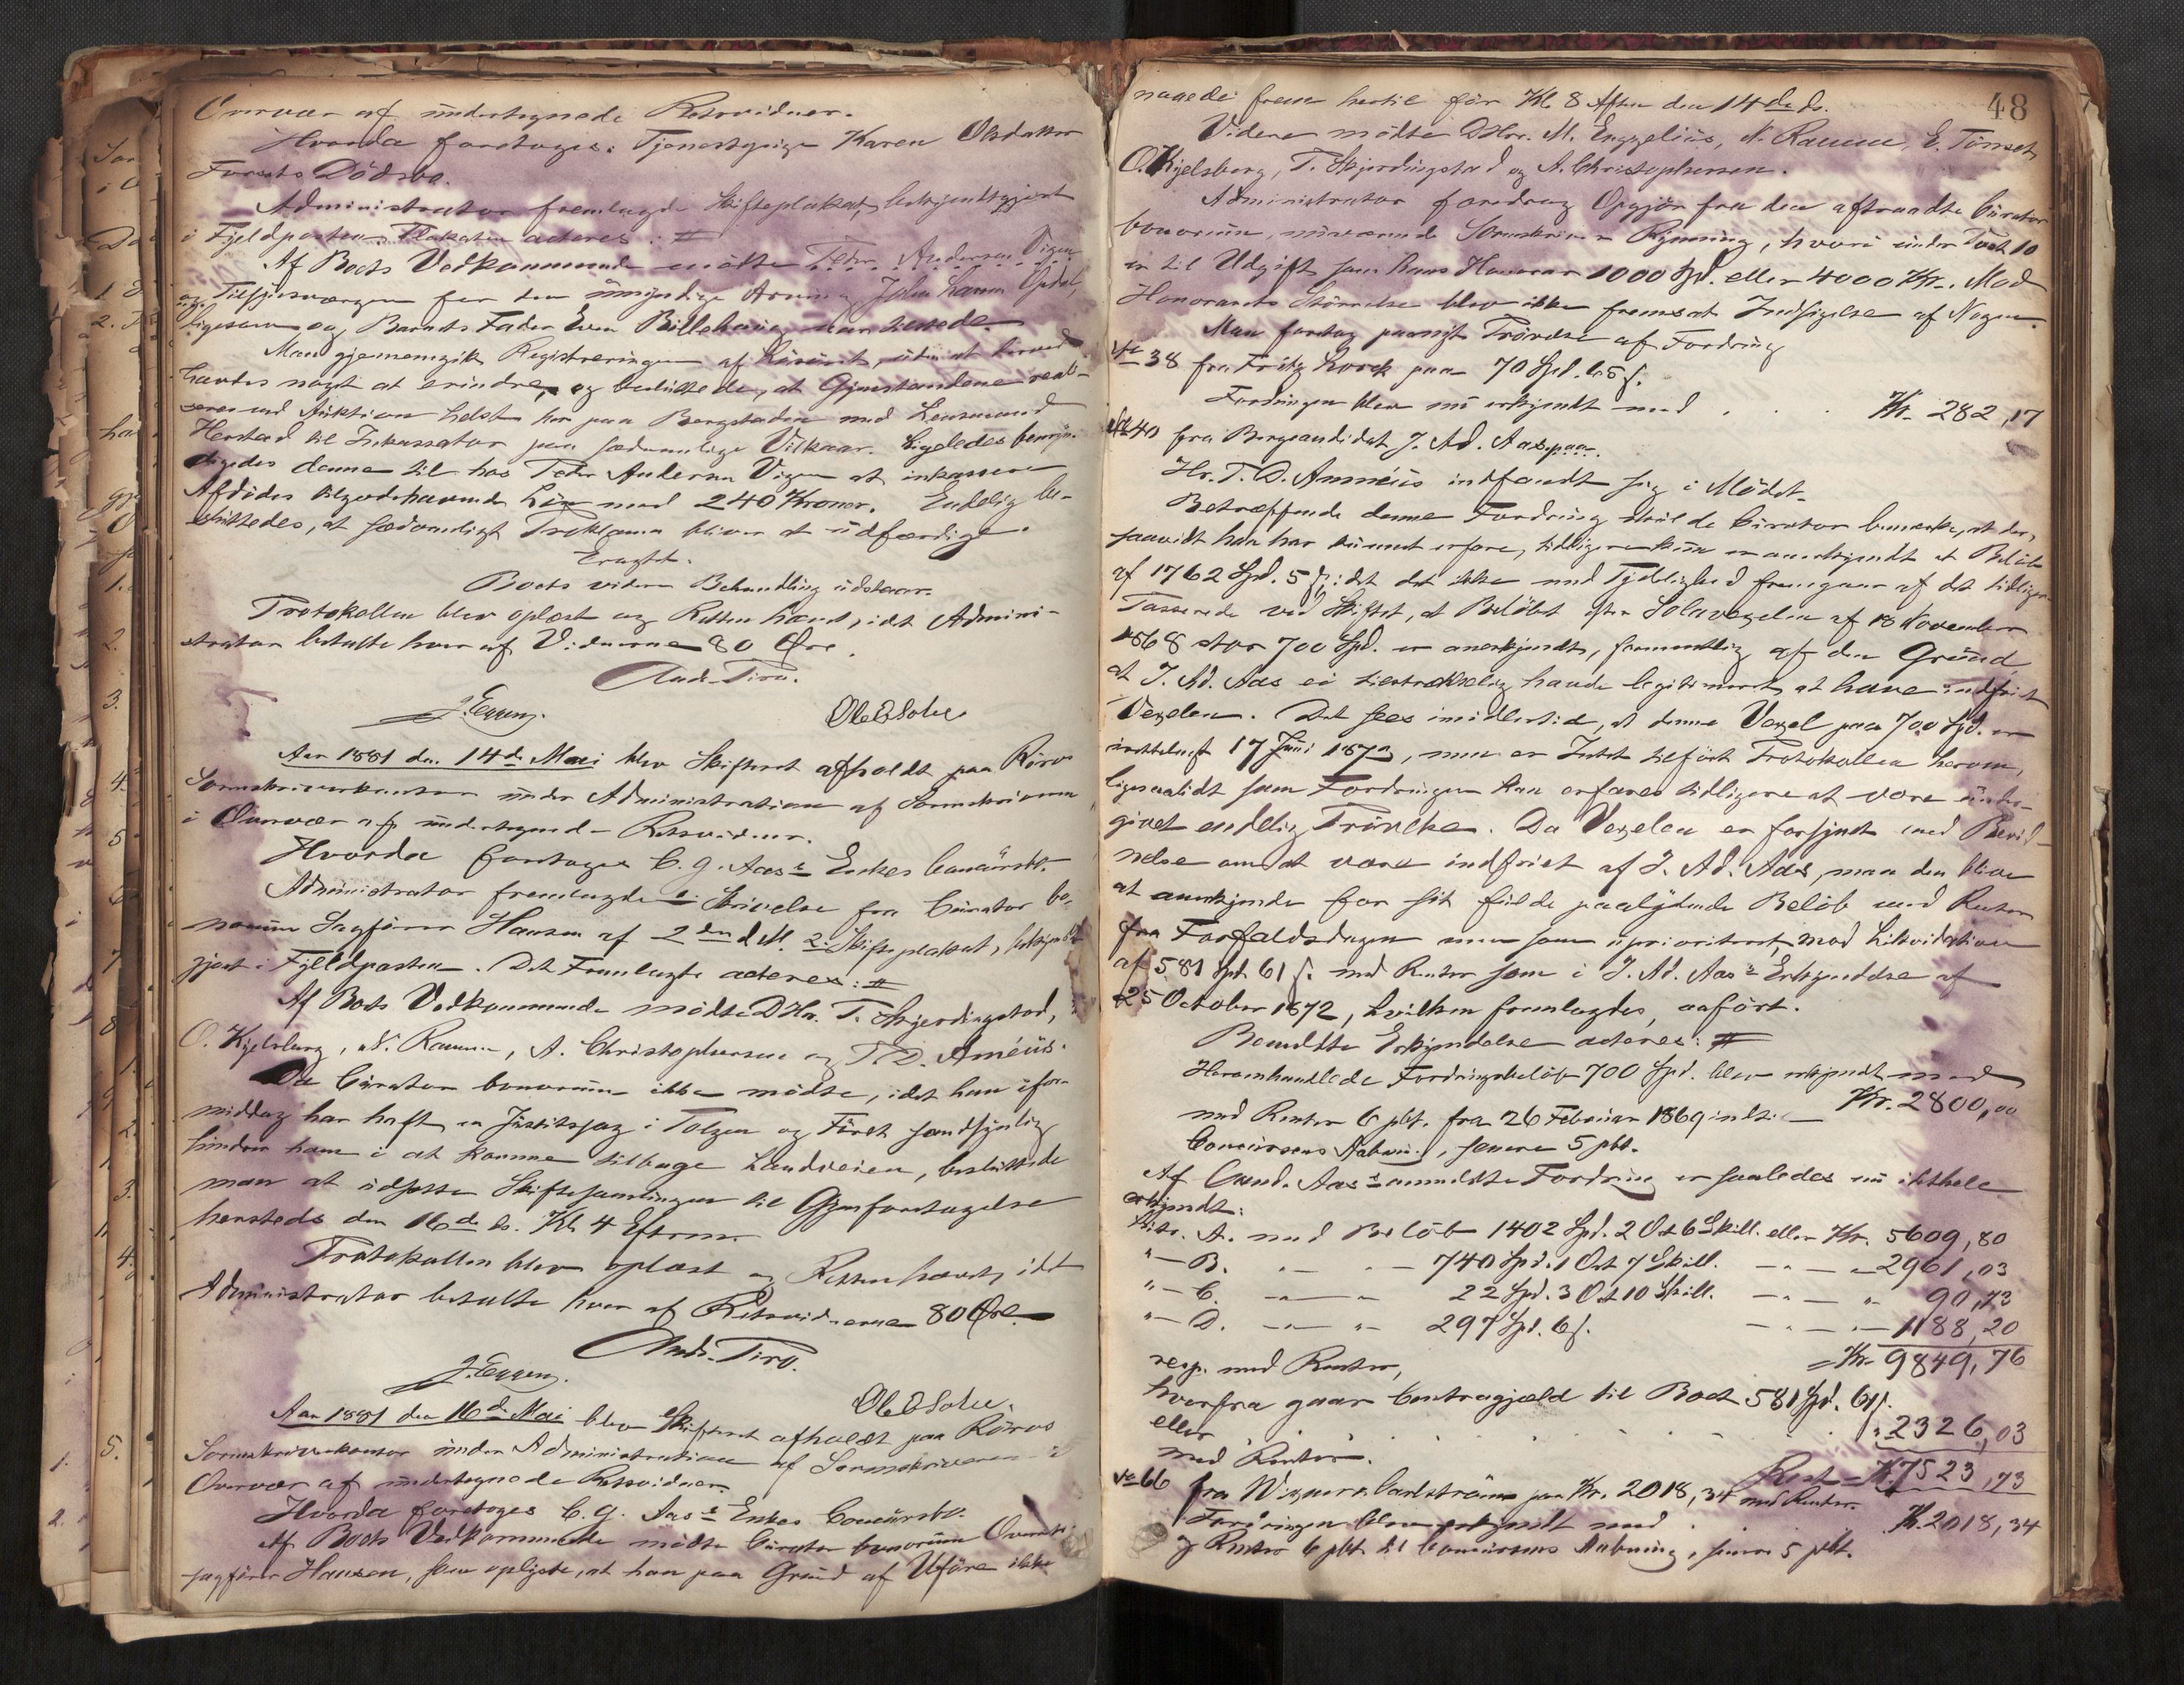 Overvær af undertegnede Retsvidner.
Hvorda foretoges: Tjenestepige Karen Olsdatter
Dödsbo.
Administrator fremlagde Skifteplakat, bekjendtgjort
i Fjeldposten. Plakaten acteres: #
Af Boets Vedkommende mödte Peder Andersen Vigen
og Tilsynsværgen for den umyndige Arving
ligesom og Barnets Fader Even var tilstede.
Man gjennemgik Registreringen af Löröret, uden at herved
havdes noget at erindre, og besluttede, at Gjenstandene reali-
seres ved Auktion helst her paa Bergstaden med Lensmand
Herstad til Inkassator paa sædvanlige Vilkaar. Ligeledes bemyn-
digedes denne til hos Peder Andersen Vigen at inkassere
Afdödes tilgodehavende Lön med 240 Kroner. Endelig be-
sluttedes, at sædvanligt Proklama bliver at udfærdige.
Eragtet.
Boets videre Behandling udstaar.
Protokollen blev oplæst og Retten hævet, idet Admini-
strator betalte hver af Vidnerne 80 Öre.
Auds. Tiro.
J. Eggen. Ole O Solie
Aar 1881 den 14de Mai blev Skifteret afholdt paa Röros
Sorenskriverkontor under Administration af Sorenskriveren
i Overvær af undertegnede Retsvidner.
Hvorda foretoges C. G. Aas's Enkes Concursbo.
Administrator fremlagde 1. Skrivelse fra Curator bo-
norum Sagförer Hansen af 2den d. M. 2. Skifteplakat, bekjendt-
gjort i Fjeldposten. Det Fremlagte acteres: #
Af Boets Vedkommende mödte DHr. T. Skjerdingstad,
O. Kjelsberg, N. Ramm, A. Christophersen og T. D. Annéus.
Da Curator bonorum ikke mödte, idet han ifor-
middag har haft en Justitssag i Tolgen og Föret sandsynlig
hindrer ham i at komme tilbage Landveien, besluttede
man at udsætte Skiftesamlingen til Gjenforetagelse
hersteds den 16de ds. Kl 4 Efterm.
Protokollen blev oplæst og Retten hævet, idet
Administrator betalte hver af Retsvidnerne 80 Öre.
Auds. Tiro.
J. Eggen. Ole O Solie.
Aar 1881 den 16de Mai blev Skifteret afholdt paa Röros
Sorenskriverkontor under Administration af Sorenskriveren i
Overvær af undertegnede Retsvidner.
Hvorda foretoges C. G. Aas's Enkes Concursbo.
Af Boets Vedkommende mödte Curator bonorum Overrets-
sagförer Hansen, som oplyste, at han paa Grund af Uföre ikke
48
naaede frem hertil för Kl 8 Aften den 14de ds.
Videre mödte DHrr. M. Engzelius, N. Ramm, E. Tönset,
O. Kjelsberg, T. Skjerdingstad og A. Christophersen.
Administrator foredrog Opgjör fra den aftraadte Curator
bonorum, nuværende Sorenskriver Rynning, hvori under Post 10
er til Udgift som hans Honorar 1000 Spd. eller 4000 Kr. Mod
Honorarets Störrelse blev ikke fremsat Indsigelse af Nogen.
Man foretog paanyt Prövelse af Fordring
No 38 fra Fritz Lorck paa 70 Spd. 65 s.
Fordringen blev nu erkjendt med . . . Kr. 282,17
No 40 fra Bergcandidat J. Ad. Aas paa
Hr. T. D. Annéus indfandt sig i Mödet.
Betræffende denne Fordring skulde Curator bemærke, at der,
saavidt han har kunnet erfare, tidligere kun er anerkjendt et Belöb
af 1762 Spd. 5 s; idet det ikke med Tydelighed fremgaar af det tidligere
Passerede ved Skiftet, at Belöbet efter Solavexelen af 18 November
1868 stor 700 Spd. er anerkjendt, formentlig af den Grund
at J. Ad. Aas ei tilstrækkelig havde legitimeret at have indfriet
Vexelen. Det sees imidlertid, at denne Vexel paa 700 Spd. er
17 Juni 187, men er Intet tilfört Protokollen herom,
ligesaalidt som Fordringen kan erfares tidligere at være under-
givet endelig Prövelse. Da Vexelen er forsynet med Bevid-
nelse om at være indfriet af J. Ad. Aas, maa den blive
at anerkjende for sit fulde paalydende Belöb med Renter
fra Forfaldsdagen men som uprioriteret, mod Likvidation
af 581 Spd 61 s. med Renter som i J. Ad. Aas's Erkjendelse af
25 October 1872, hvilken fremlagdes, anfört.
Bemeldte Erkjendelse acteres: #
Heromhandlede Fordringsbelöb 700 Spd. blev erkjendt med
Kr. 2800,00
med Renter 6 pCt. fra 26 Februar 1869 indtil
Concursens Aabning, senere 5 pCt.
Af Cand. Aas's anmeldte Fordring er saaledes nu ialthele
erkjendt:
Litr. A. med Belöb 1402 Spd. 2 Ort 6 Skill. eller Kr. 5609,80
" - B. " - " - 740 Spd. 1 Ort 7 Skill. - " - " 2961,03
" - C. - " - " 22 Spd. 3 Ort 10 Skill. - " - " 90,73
" - D. - " - " 297 Spd. 6 s. - " - " 1188,20
resp. med Renter, = Kr. 9849,76
hvorfra gaar Contragjæld til Boet 581 Spd. 61 s.
eller . . . . . . . . " 2326,03
med Renter. Rest = Kr 7523,73
No 66 fra Wigner & Carlström paa Kr. 2018,34 med Renter.
Fordringen blev erkjendt med . . . Kr. 2018,34
og Renter 6 pCt. til Concursens Aabning, senere 5 pCt.